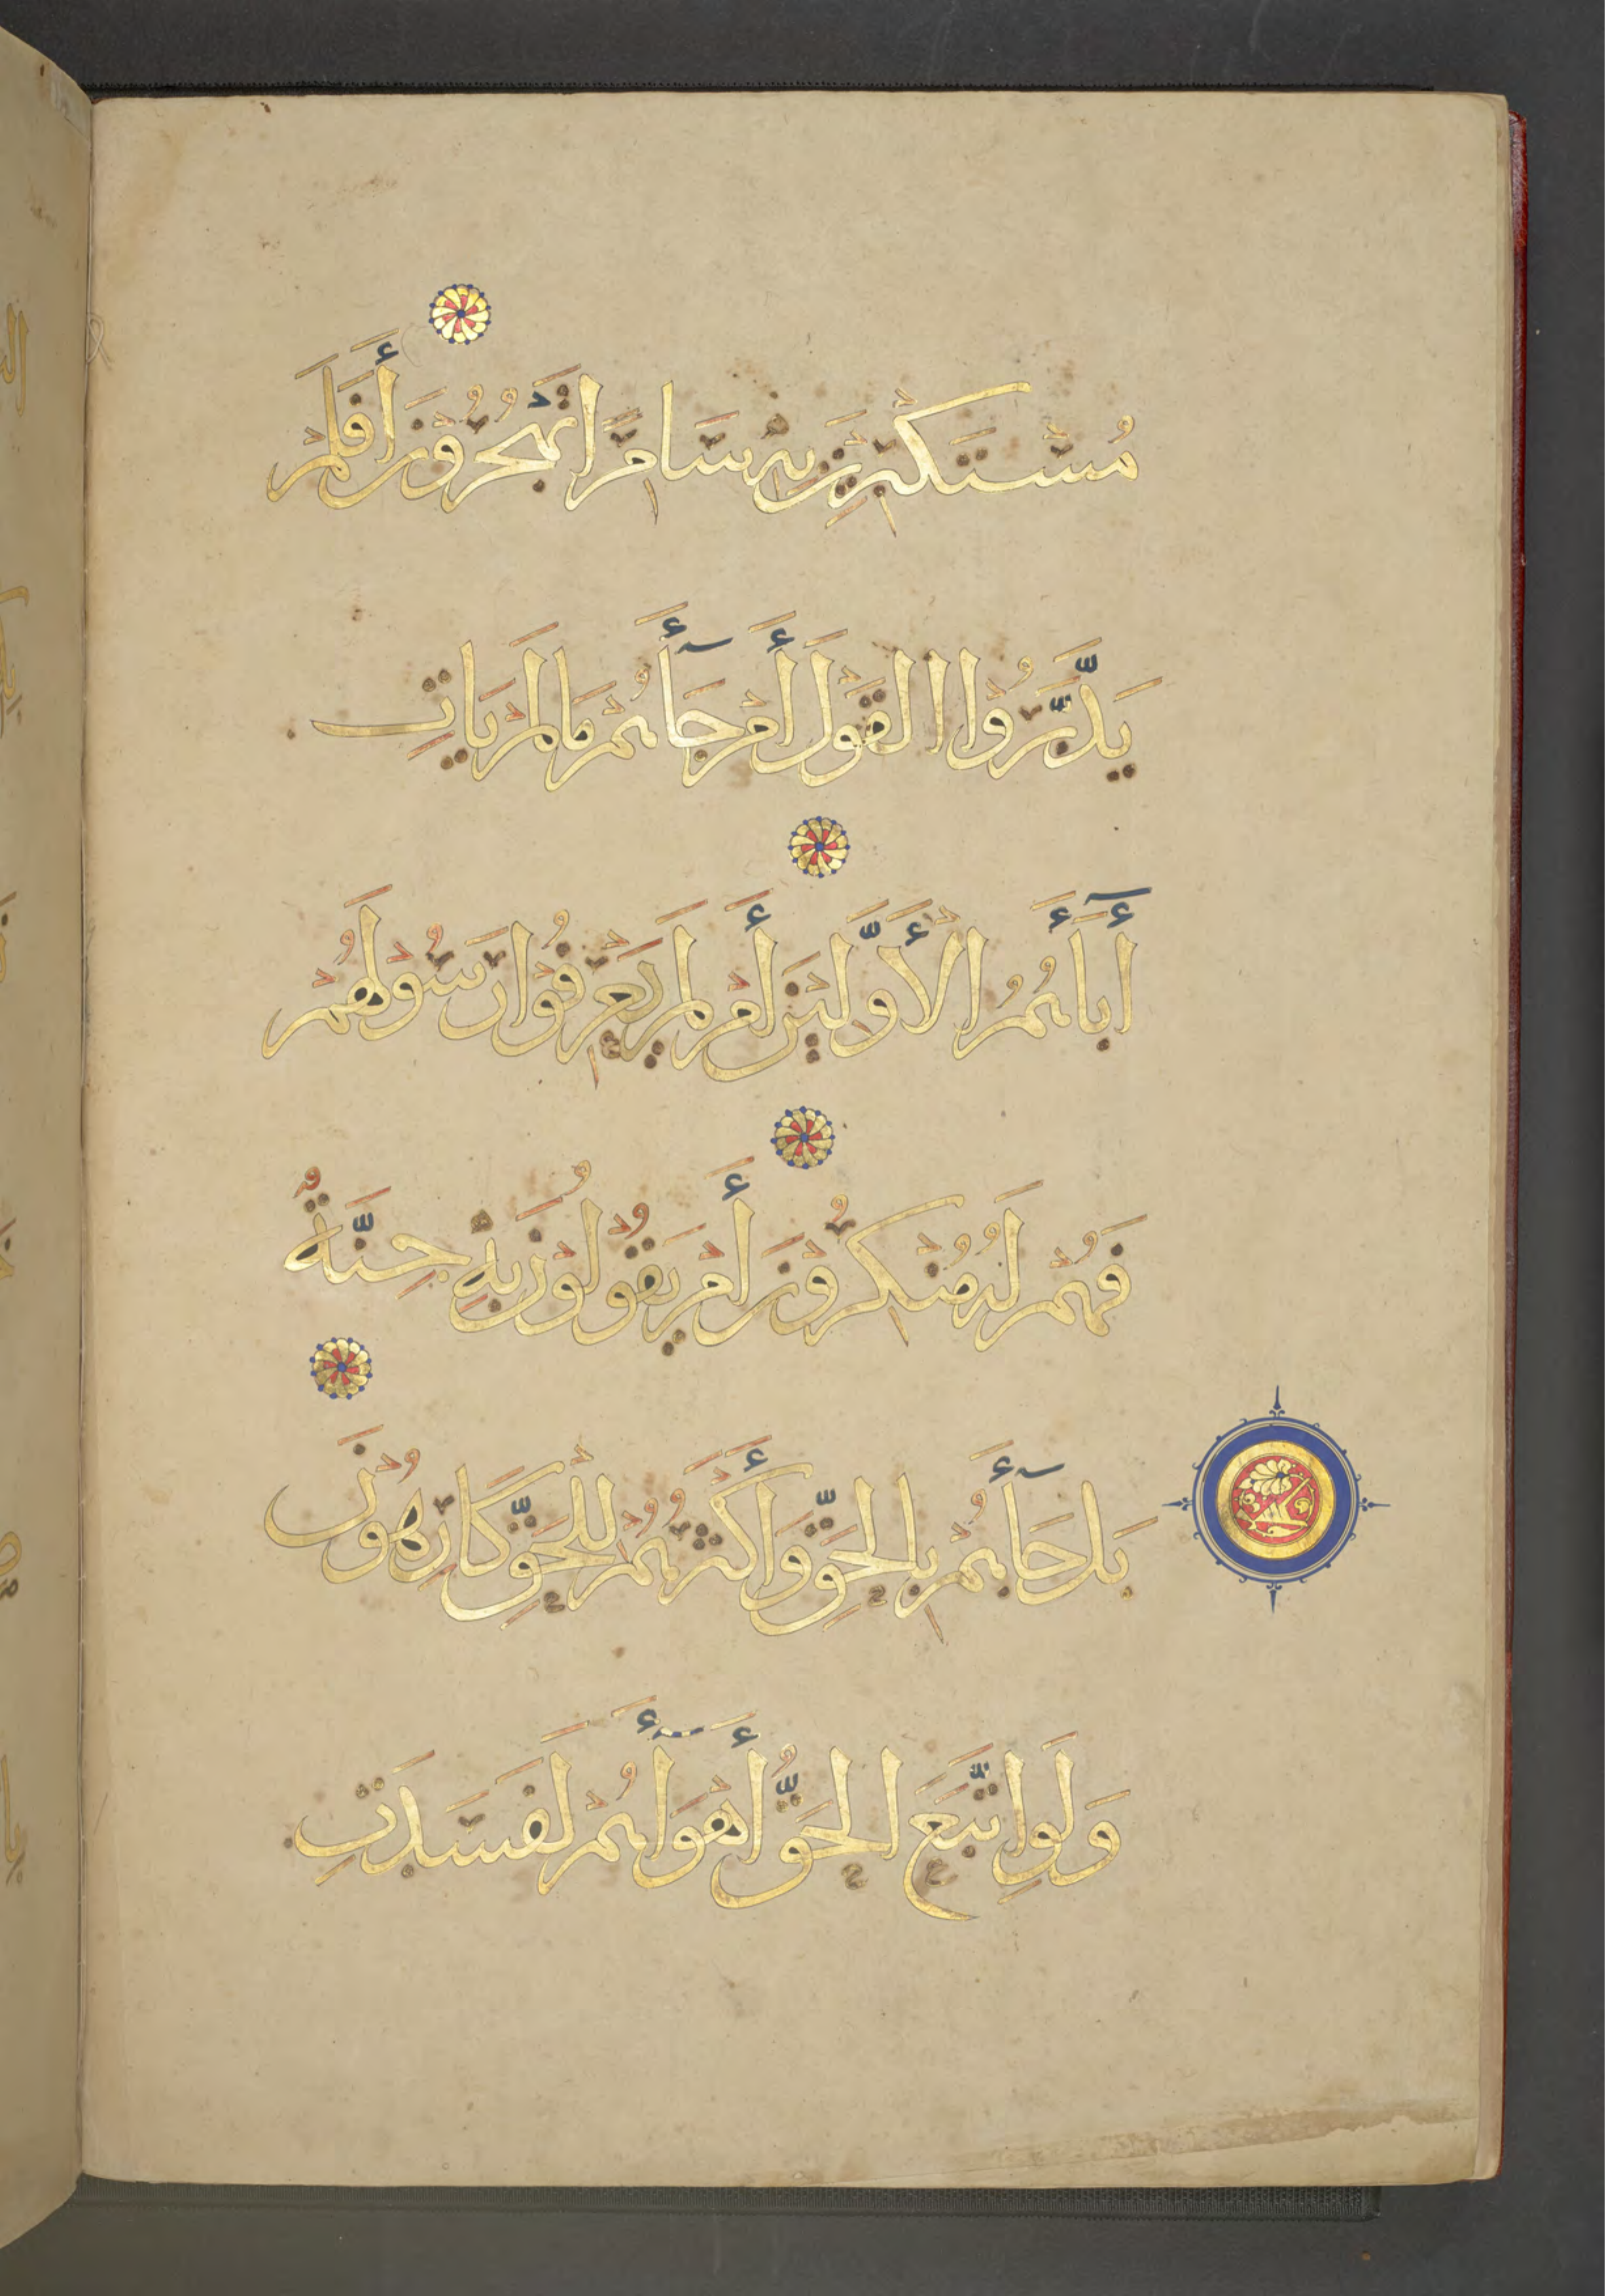 مُسْتَكْبِرِينَ بِهِ سَامِرًا تَهْجُرُونَ أَفَلَمْ
يَدَّبَّرُوا الْقَوْلَ أَمْ جَآءَهُمْ مَا لَمْ يَأْتِ
أَبَآءَهُمُ الْأَوَّلِينَ أَمْ لَمْ يَعْرِفُوا رَسُولَهُمْ
فَهُمْ لَهُ مُنْكِرُونَ أَمْ يَقُولُونَ بِهِ جِنَّةٌ
بَلْ جَآءَهُمْ بِالْحَقِّ وَأَكْثَرُهُمْ لِلْحَقِّ كَارِهُونَ
وَلَوِ اتَّبَعَ الْحَقُّ أَهْوَآءَهُمْ لَفَسَدَتِ